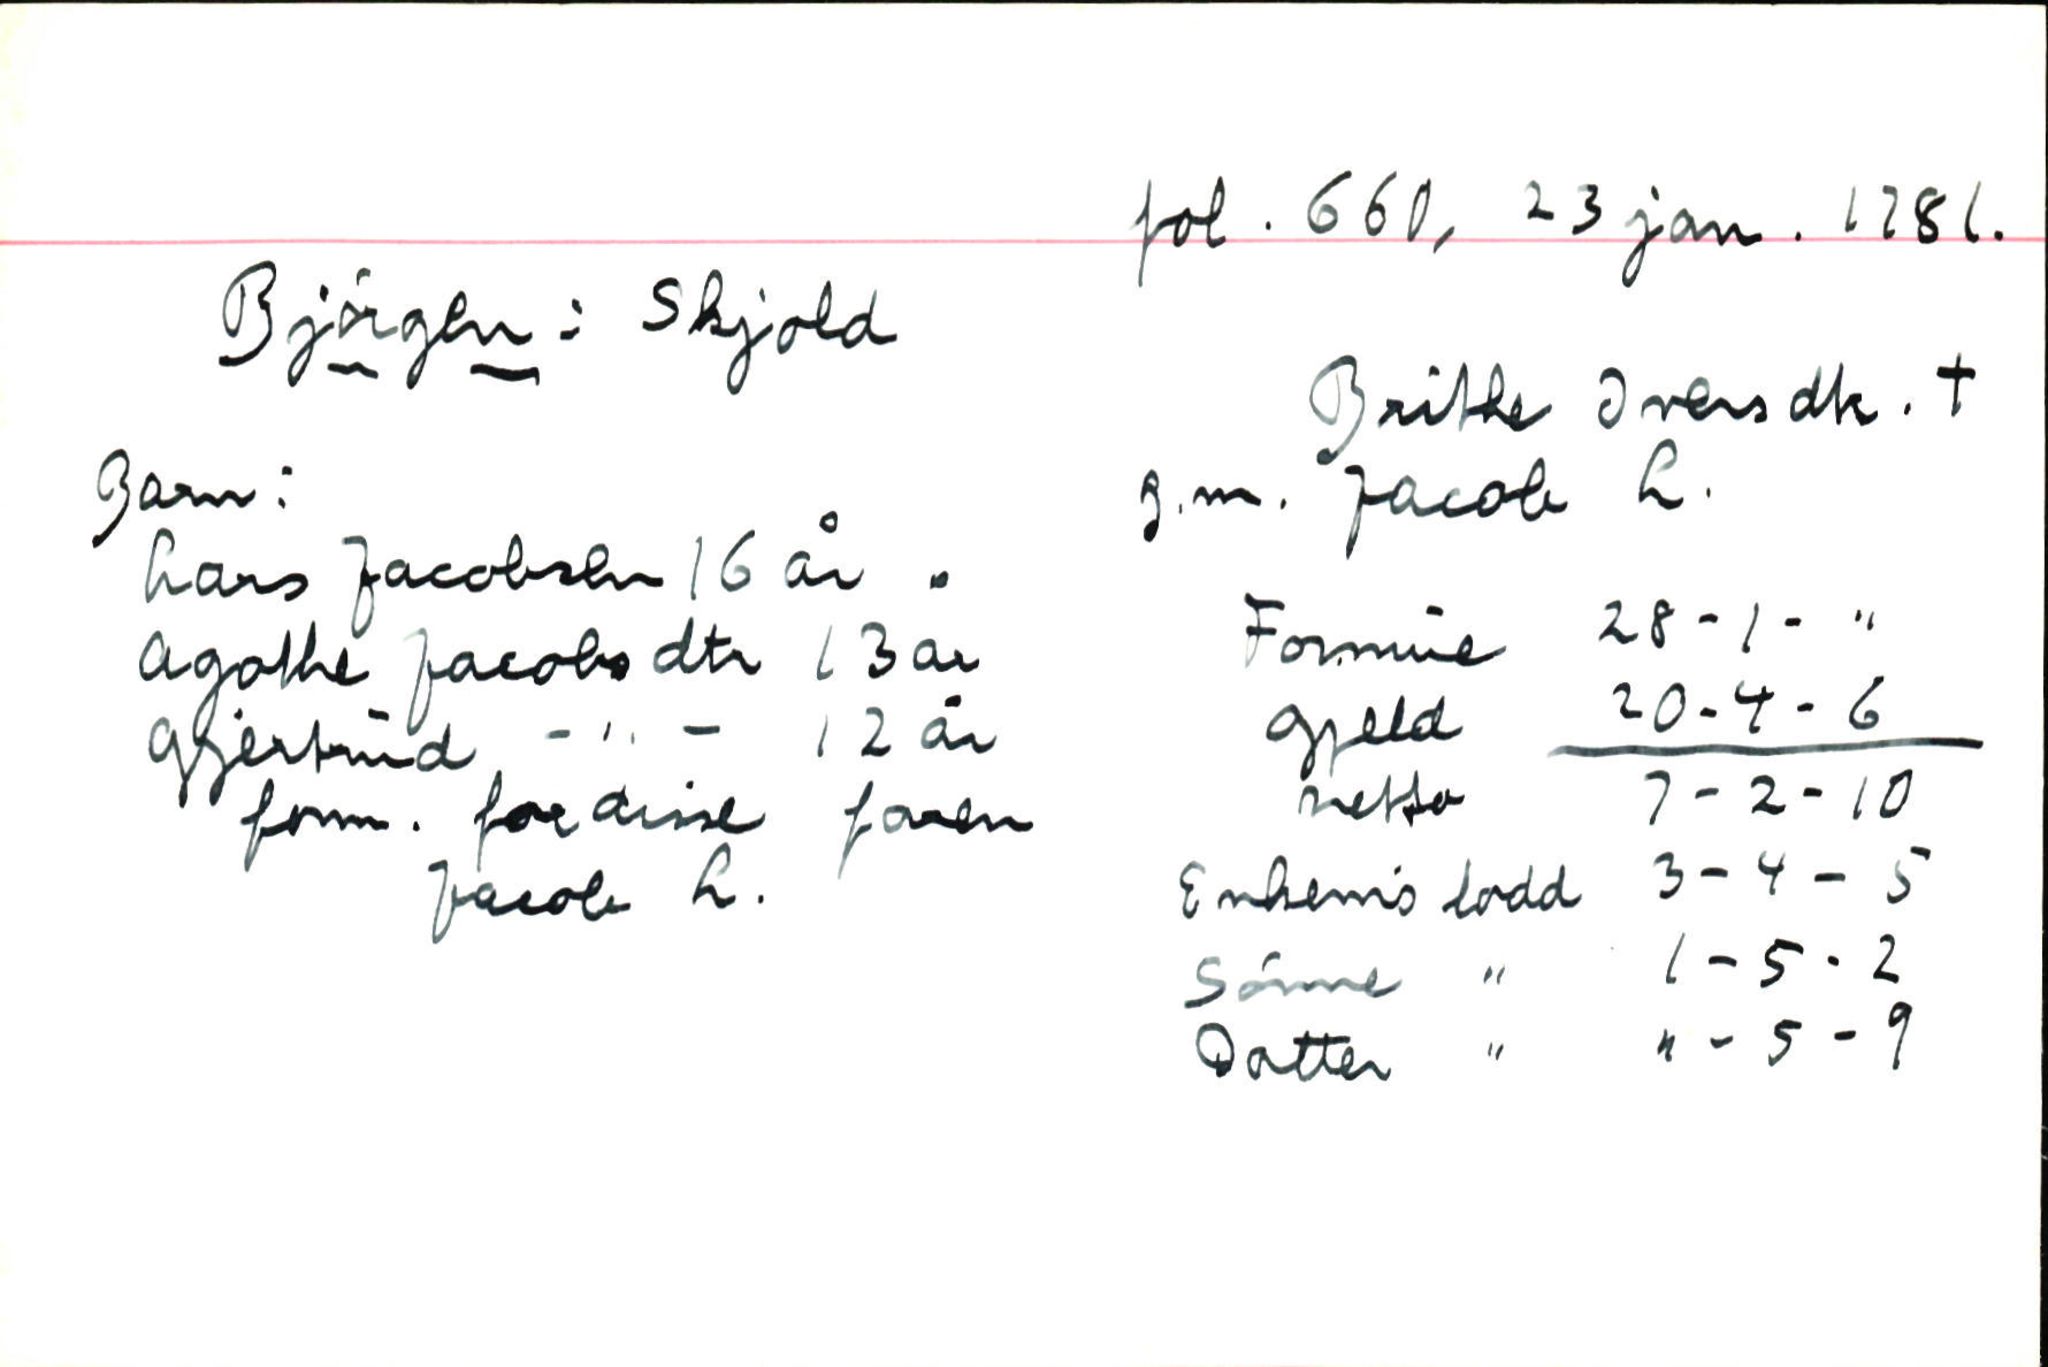 fol. 660, 23 jan. 1781.
Björgen: Skjold
Brithe Iversdtr. †
g.m. Jacob L.
Barn:
Lars Jacobsen 16 år.
Agathe Jacobsdtr 13 år
Gjertrud - " - 12 år
form. for disse faren
Jacob L.
Formue 28 - 1 - "
Gjeld 20 - 4 - 6
netto 7 - 2 - 10
Enkem's lodd 3 - 4 - 5
Sönne " 1 - 5 - 2
Datter " " - 5 - 9